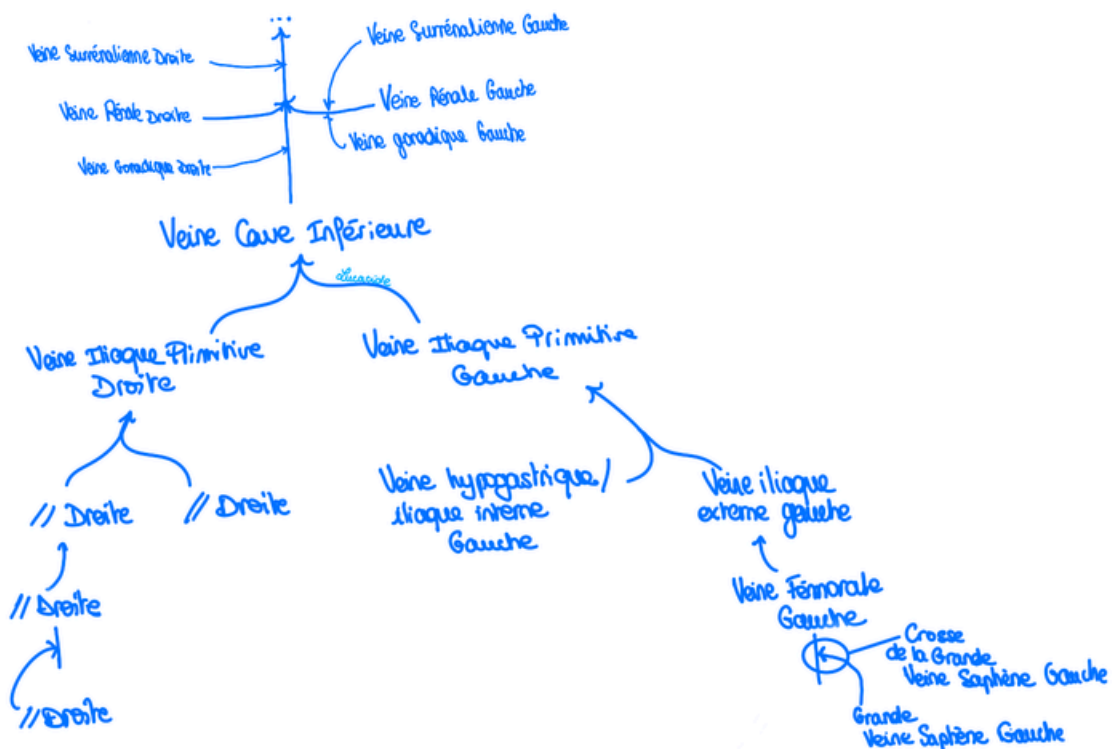 ...
Veine Surrénalienne Gauche
Veine Surrénalienne Droite
Veine Rénale Gauche
Veine Rénale Droite
Veine gonadique Gauche
Veine Gonadique Droite
Veine Cave Inférieure
Veine Iliaque Primitive
Droite
Veine Iliaque Primitive
Gauche
// Droite
// Droite
Veine hypogastrique/
iliaque interne
Gauche
Veine iliaque
externe gauche
// Droite
Veine Fémorale
Gauche
Crosse
de la Grande
Veine Saphène Gauche
// Droite
Grande
Veine Saphène Gauche